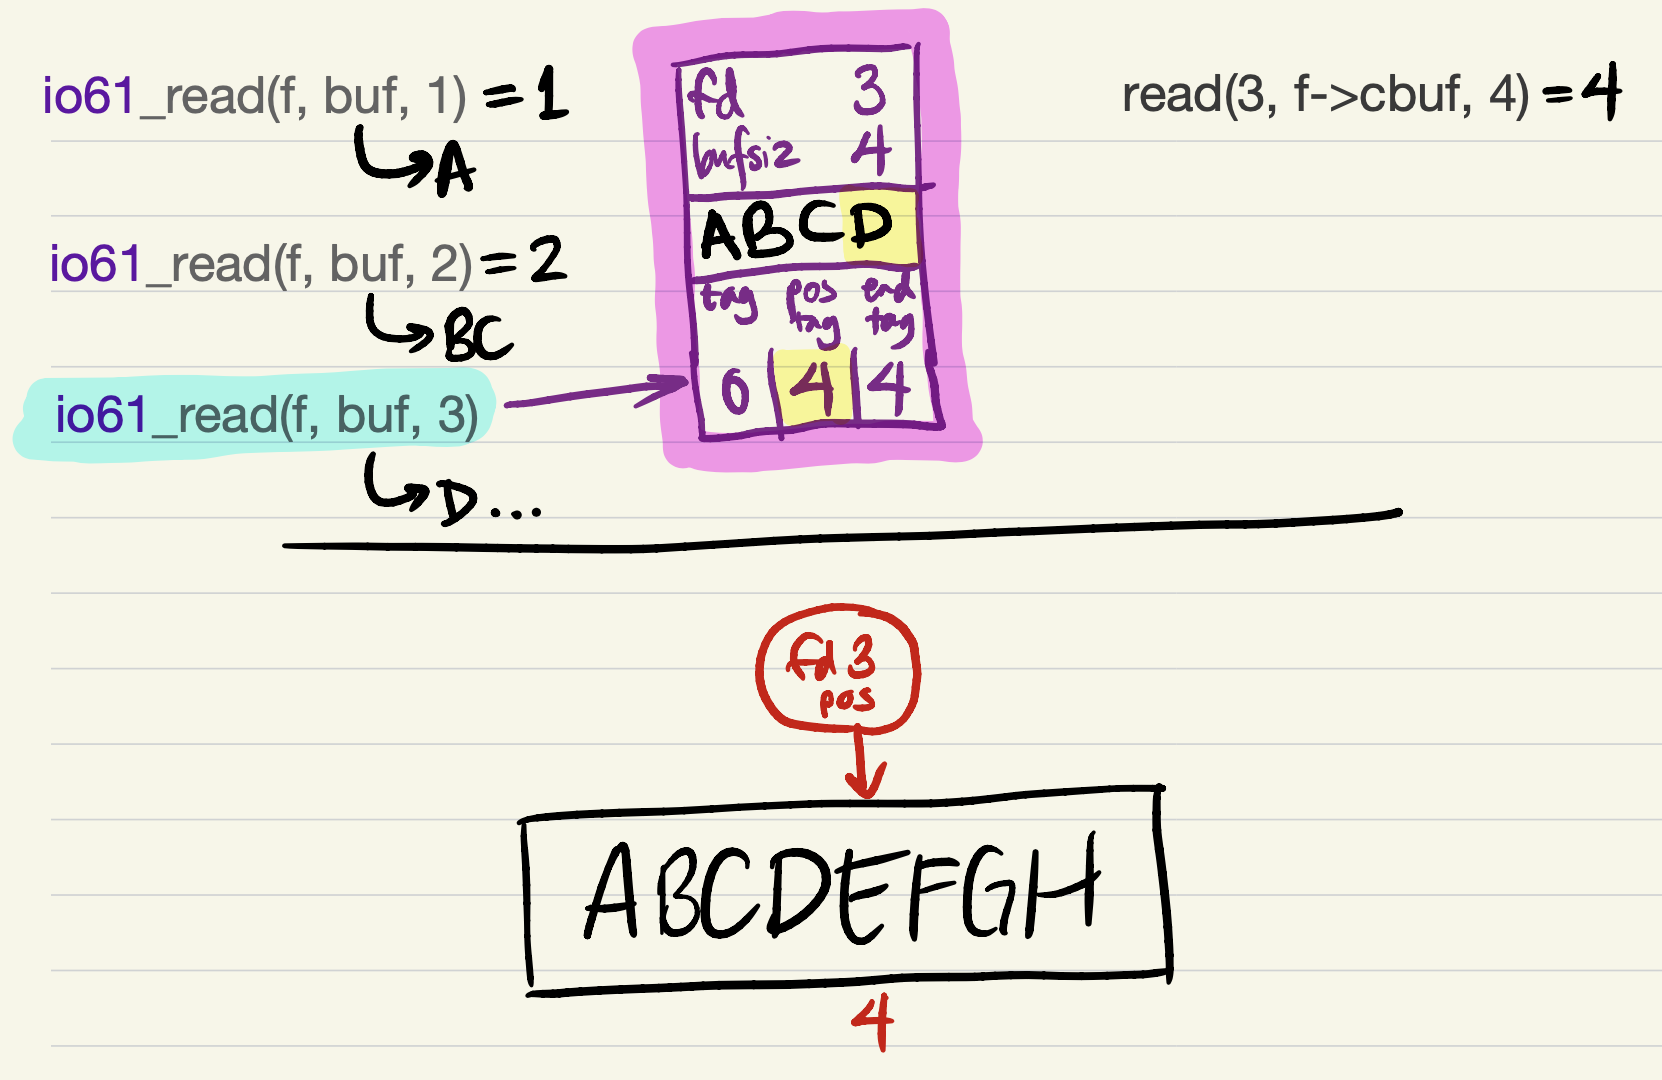 io61_read(f, buf, 1) = 1
A
io61_read(f, buf, 2) = 2
BC
io61_read(f, buf, 3)
D...
fd 3
bufsiz 4
ABCD
tag pos tag end tag
0 4 4
read(3, f->cbuf, 4) = 4
fd 3
pos
ABCDEFGH
4